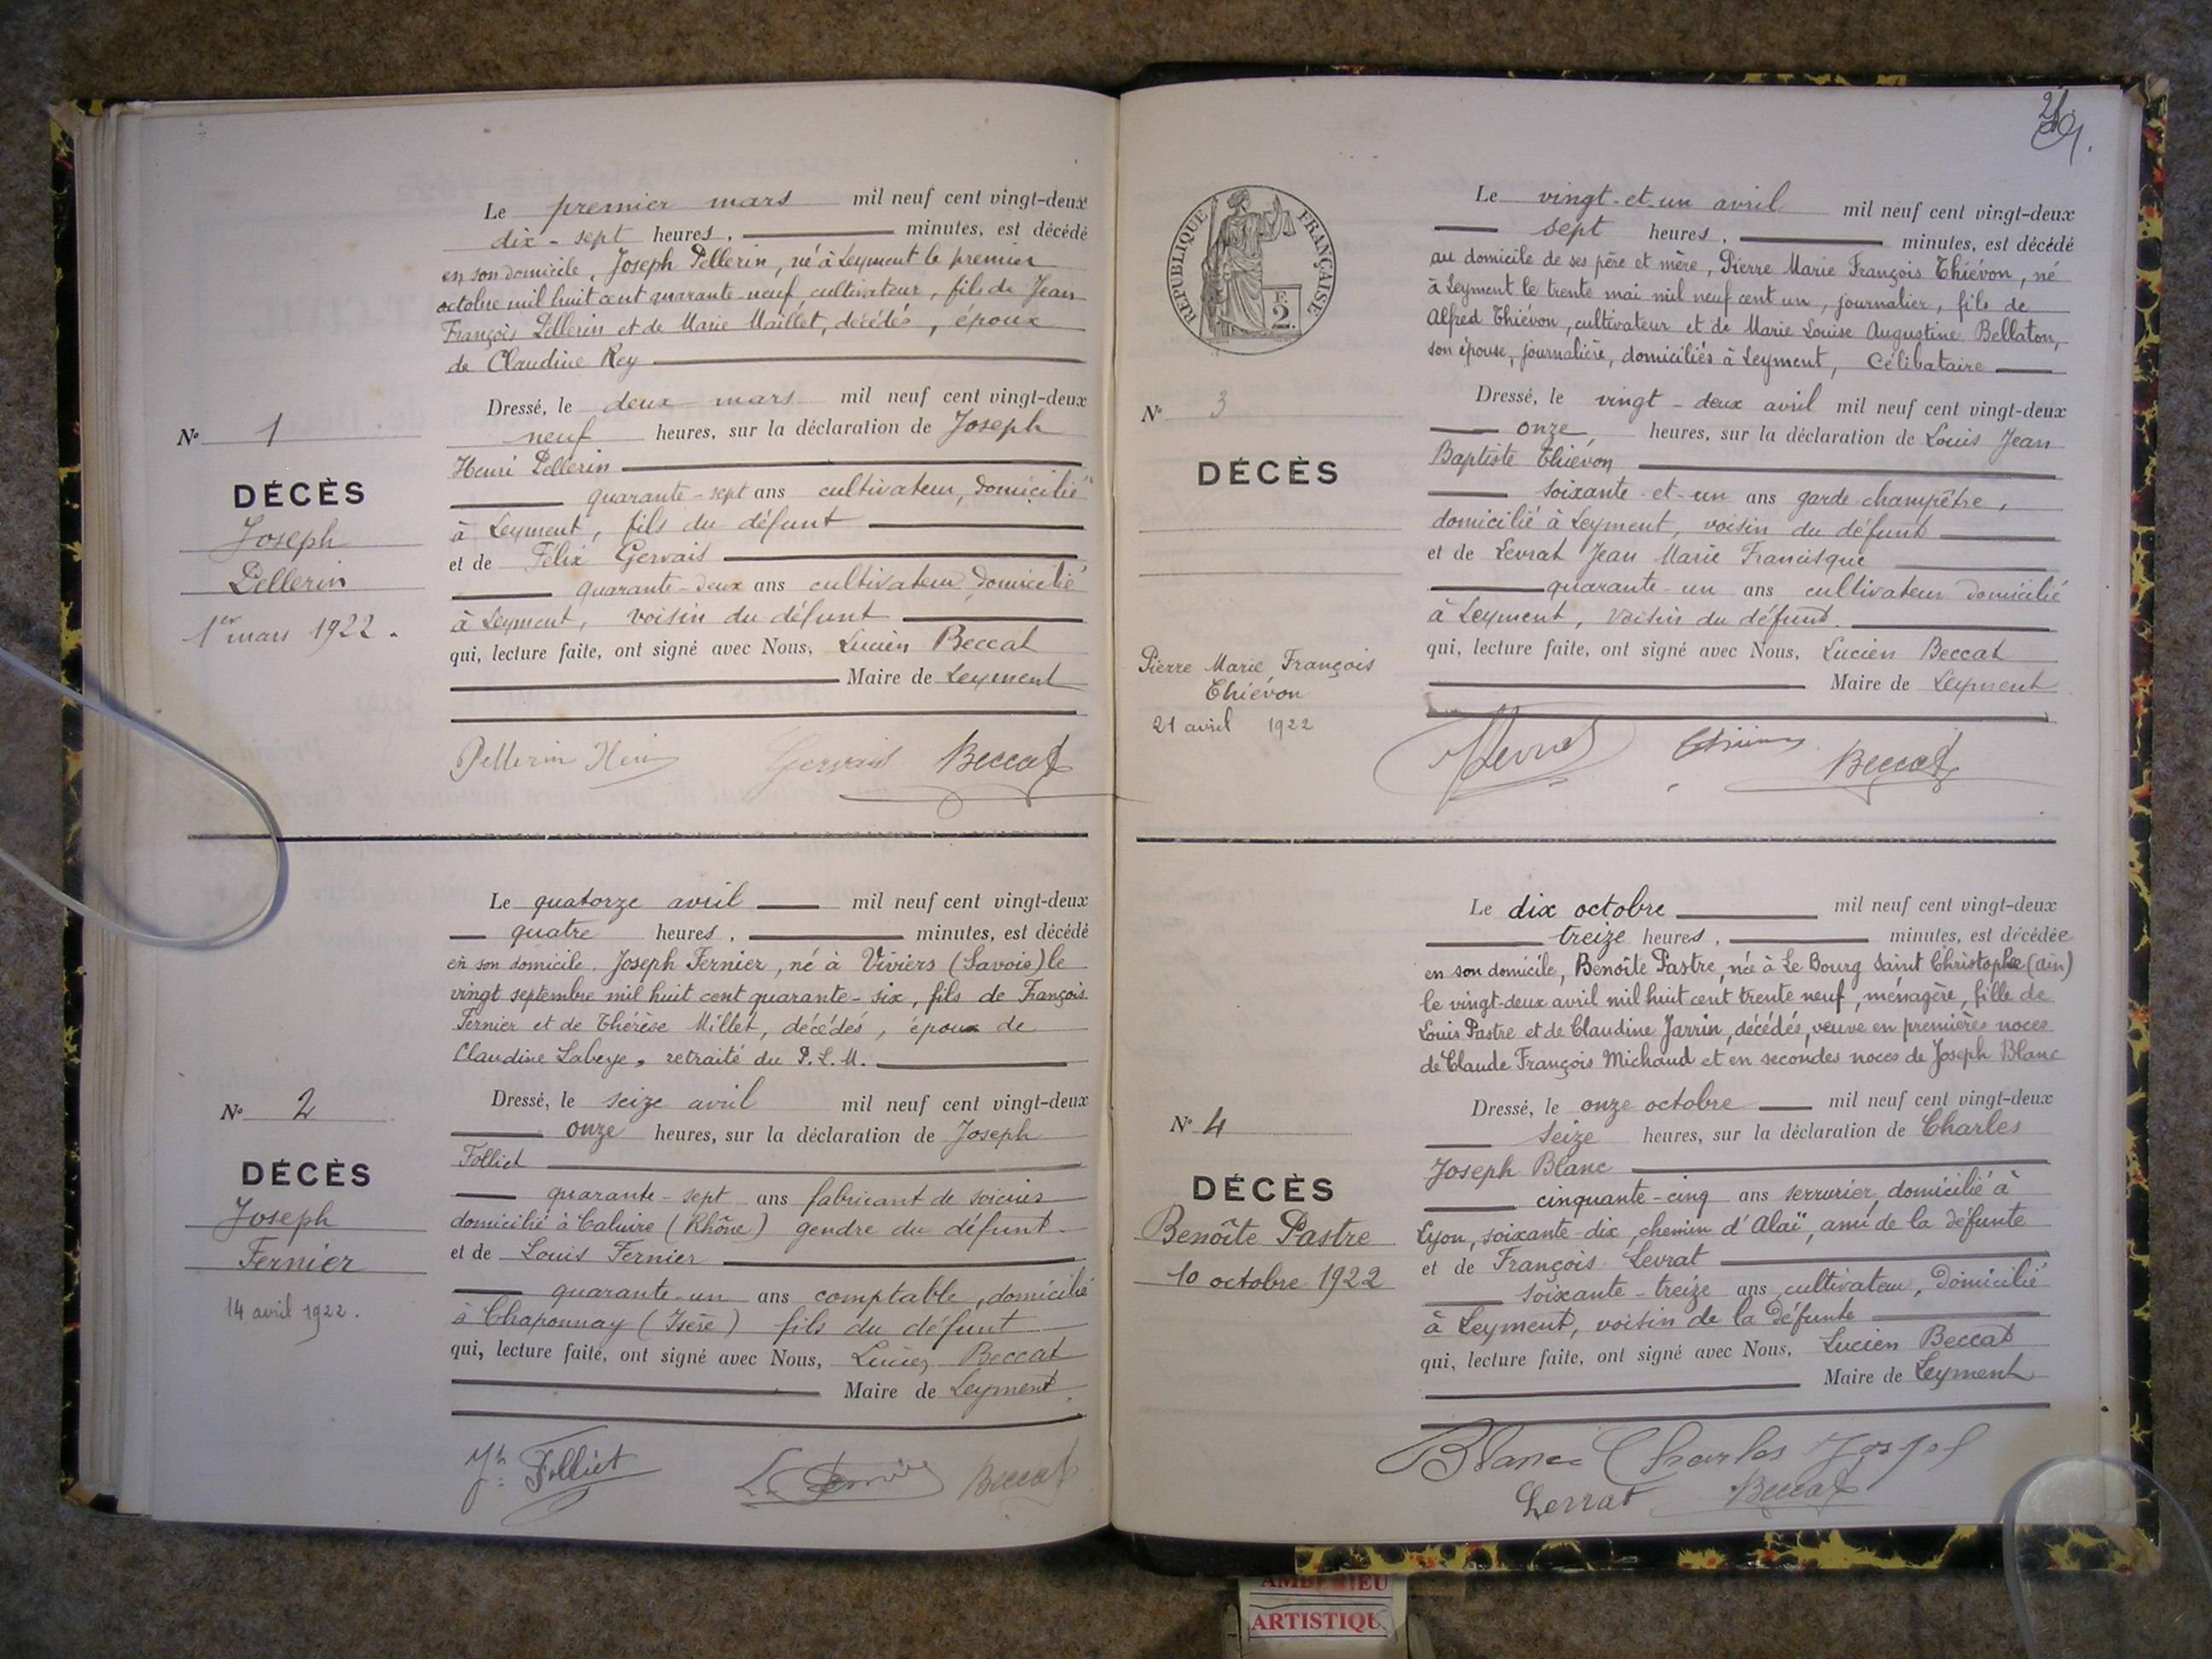 Le premier mars mil neuf cent vingt-deux
dix-sept heures, minutes, est décédé
en son domicile, Joseph Pellerin, né à Leyment le premier
octobre mil huit cent quarante-neuf, cultivateur, fils de Jean
François Pellerin et de Marie Maillet, décédés, époux
de Claudine Rey
Dressé, le deux mars mil neuf cent vingt-deux
neuf heures, sur la déclaration de Joseph
Henri Pellerin
quarante-sept ans cultivateur, domicilié
à Leyment, fils du défunt
et de Félix Gervais
quarante-deux ans cultivateur, domicilié
à Leyment, voisin du défunt
qui, lecture faite, ont signé avec Nous, Lucien Beccat
Maire de Leyment
Pellerin Henri Gervais Beccat
N° 1
DÉCÈS
Joseph
Pellerin
1er mars 1922.
Le quatorze avril mil neuf cent vingt-deux
quatre heures, minutes, est décédé
en son domicile. Joseph Fernier, né à Viviers (Savoie) le
vingt septembre mil huit cent quarante-six, fils de François
Fernier et de Thérèse Millet, décédés, époux de
Claudine Labeye, retraité du P.L.M.
Dressé, le seize avril mil neuf cent vingt-deux
onze heures, sur la déclaration de Joseph
Folliet
quarante-sept ans fabricant de soieries
domicilié à Caluire (Rhône) gendre du défunt
et de Louis Fernier
quarante-un ans comptable, domicilié
à Chaponnay (Isère) fils du défunt
qui, lecture faite, ont signé avec Nous, Lucien Beccat
Maire de Leyment
Jh Folliet L. Fernier Beccat
N° 2
DÉCÈS
Joseph
Fernier
14 avril 1922.
RÉPUBLIQUE FRANÇAISE
2
Le vingt-et-un avril mil neuf cent vingt-deux
sept heures, minutes, est décédé
au domicile de ses père et mère, Pierre Marie François Thiévon, né
à Leyment le trente mai mil neuf cent un, journalier, fils de
Alfred Thiévon, cultivateur et de Marie Louise Augustine Bellaton,
son épouse, journalière, domiciliés à Leyment, Célibataire
Dressé, le vingt-deux avril mil neuf cent vingt-deux
onze heures, sur la déclaration de Louis Jean
Baptiste Thiévon
soixante-et-un ans garde-champêtre,
domicilié à Leyment, voisin du défunt
et de Levrat Jean Marie Francisque
quarante-un ans cultivateur domicilié
à Leyment, voisin du défunt.
qui, lecture faite, ont signé avec Nous, Lucien Beccat
Maire de Leyment
Levrat Thiévon Beccat
N° 3
DÉCÈS
Pierre Marie François
Thiévon
21 avril 1922
Le dix octobre mil neuf cent vingt-deux
treize heures, minutes, est décédée
en son domicile, Benoîte Pastre, née à Le Bourg Saint Christophe (Ain)
le vingt-deux avril mil huit cent trente neuf, ménagère, fille de
Louis Pastre et de Claudine Jarrin, décédés, veuve en premières noces
de Claude François Michaud et en secondes noces de Joseph Blanc
Dressé, le onze octobre mil neuf cent vingt-deux
seize heures, sur la déclaration de Charles
Joseph Blanc
cinquante-cinq ans serrurier, domicilié à
Lyon, soixante-dix, chemin d'Alaï, ami de la défunte
et de François Levrat
soixante-treize ans cultivateur, domicilié
à Leyment, voisin de la défunte
qui, lecture faite, ont signé avec Nous, Lucien Beccat
Maire de Leyment
Blanc Charles Josef
Levrat Beccat
N° 4
DÉCÈS
Benoîte Pastre
10 octobre 1922
ARTISTIQU